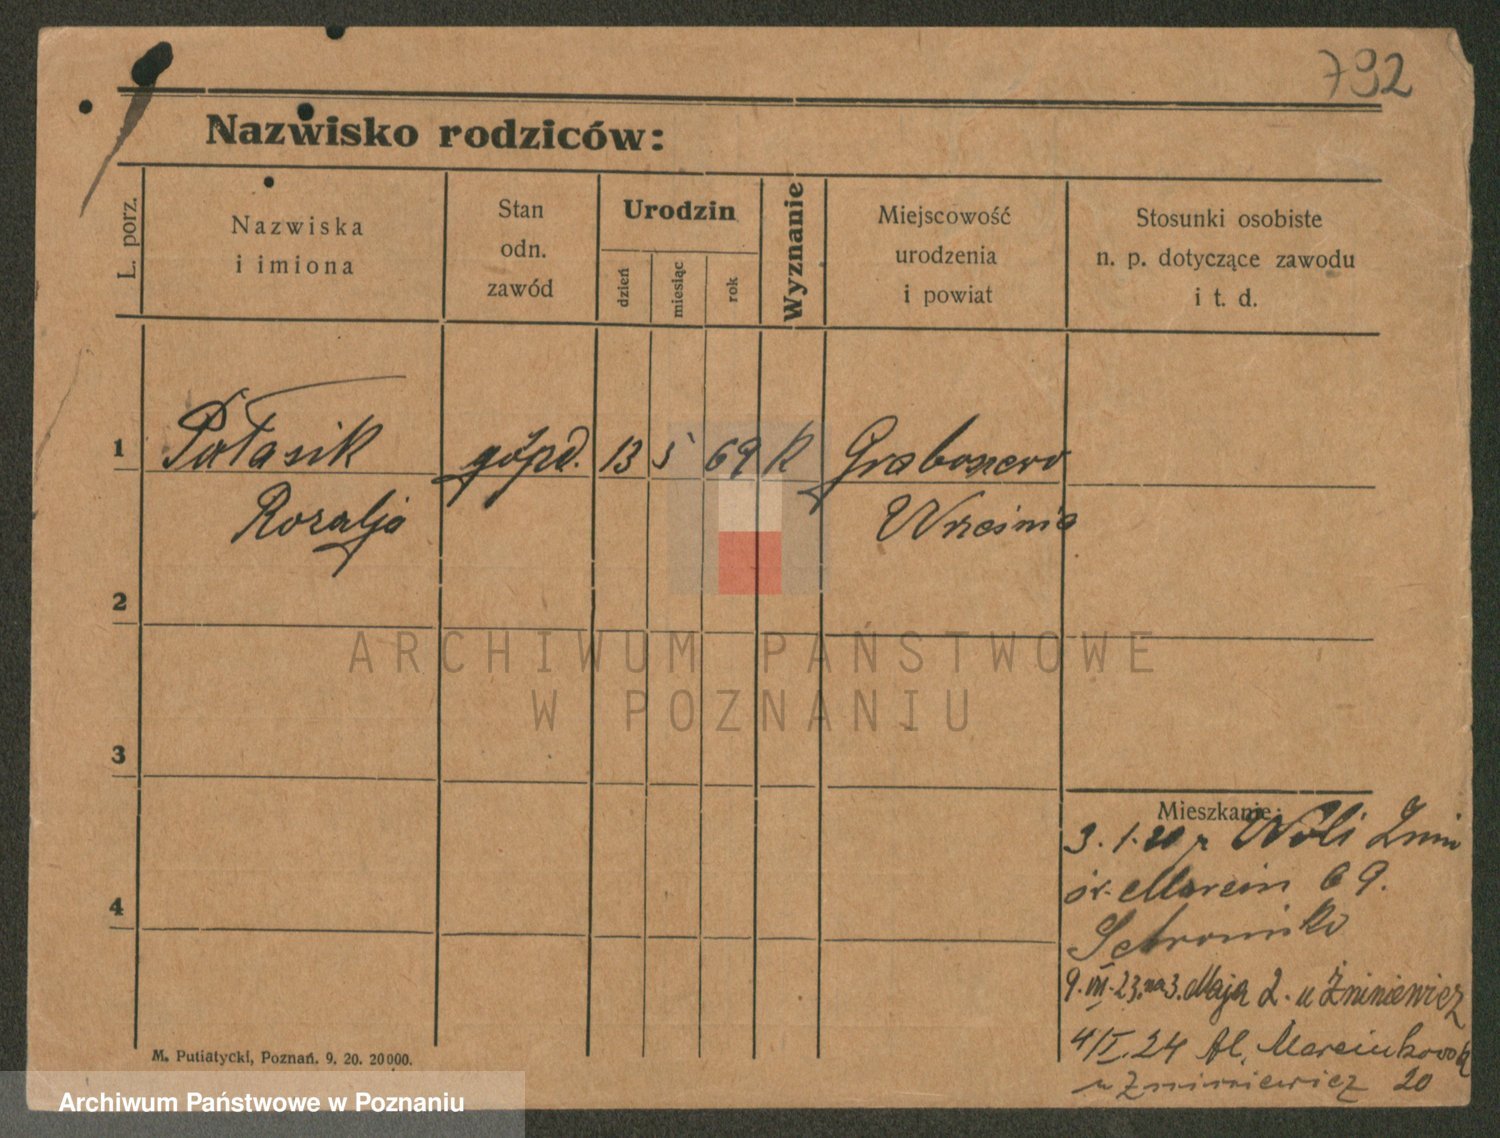 792
Nazwisko rodziców:
L. porz.
Nazwiska
i imiona
Stan
odn.
zawód
Urodzin
dzień
miesiąc
rok
Wyznanie
Miejscowość
urodzenia
i powiat
Stosunki osobiste
n. p. dotyczące zawodu
i t. d.
1 Pałasik góspd. 13 5 69 k Grabowo
Rozalja Wrześnie
2
ARCHIWUM PAŃSTWOWE
W POZNANIU
3
Mieszkanie:
3. 1. 20 r Woli Żnin
św. Marcin 69.
4
9. VII. 23. na 3. Maja 2. u Żniniewicz
4/I. 24 Al. Marcinkowsk
u Żniniewicz 20
M. Putiatycki, Poznań. 9. 20. 20000.
Archiwum Państwowe w Poznaniu